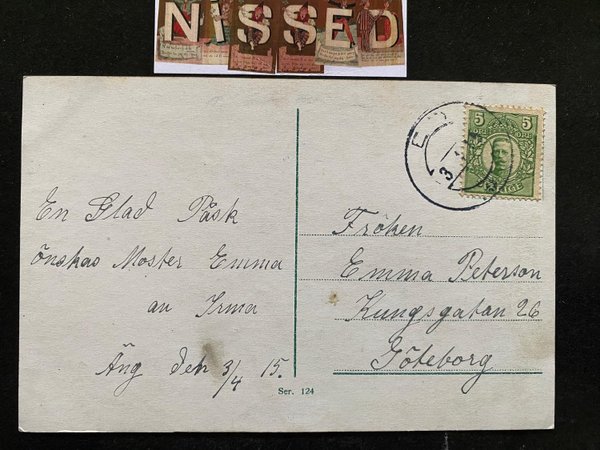 NISSED
En Glad Påsk
önskas Moster Emma
av Irma
Äng den 3/4 15.
Ser. 124
5 5
Fröken
Emma Peterson
Kungsgatan 26
Göteborg